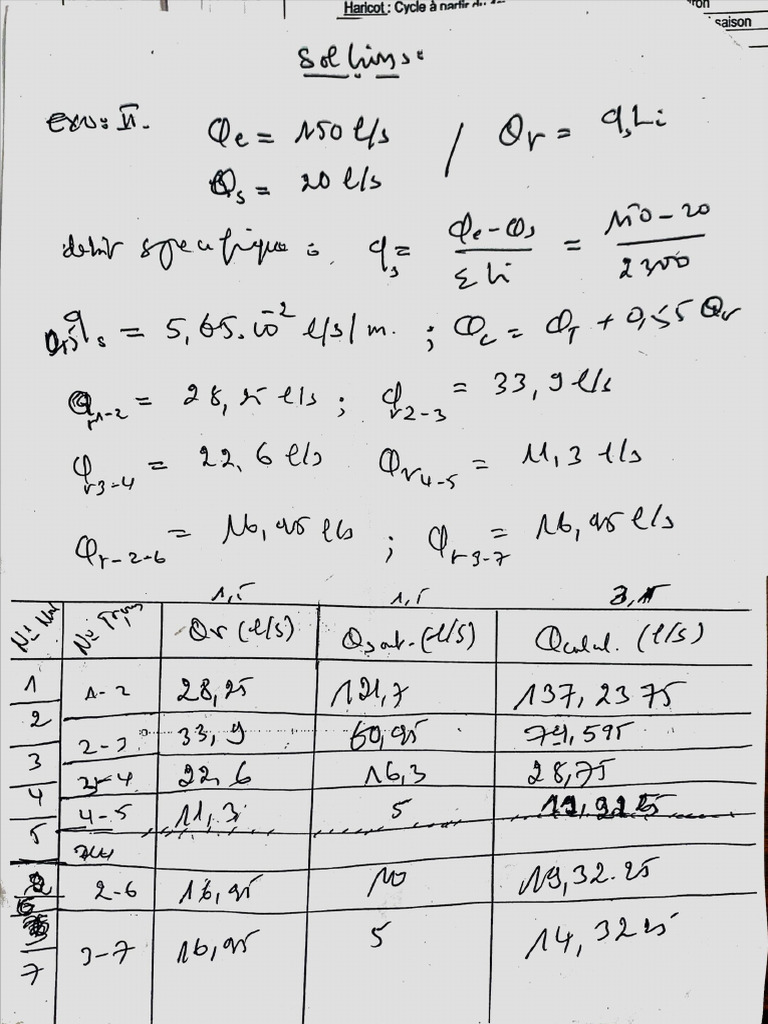 Haricot : Cycle à partir du
saison
Solutions:
exo: II. Qe = 150 l/s / Qr = qs Li
Qs = 20 l/s
debit specifique : qs = Qe-Qs / Σ Li = 150-20 / 2300
qs = 5,65.10-2 l/s/m. ; Qc = QT + 0,55 Qr
Qr1-2 = 28,25 l/s ; Qr2-3 = 33,9 l/s
Qr3-4 = 22,6 l/s Qr4-5 = 11,3 l/s
Qr-2-6 = 16,95 l/s ; Qr3-7 = 16,95 l/s
1,5 1,5
Qr (l/s) Qsort. (l/s) Qcalcul. (l/s)
1 1-2 28,25 121,7 137,2375
2 2-3 33,9 60,95 79,595
3 3-4 22,6 16,3 28,75
4 4-5 11,3 5
5
6 2-6 16,95 10 19,32.25
7 3-7 16,95 5 14,3225